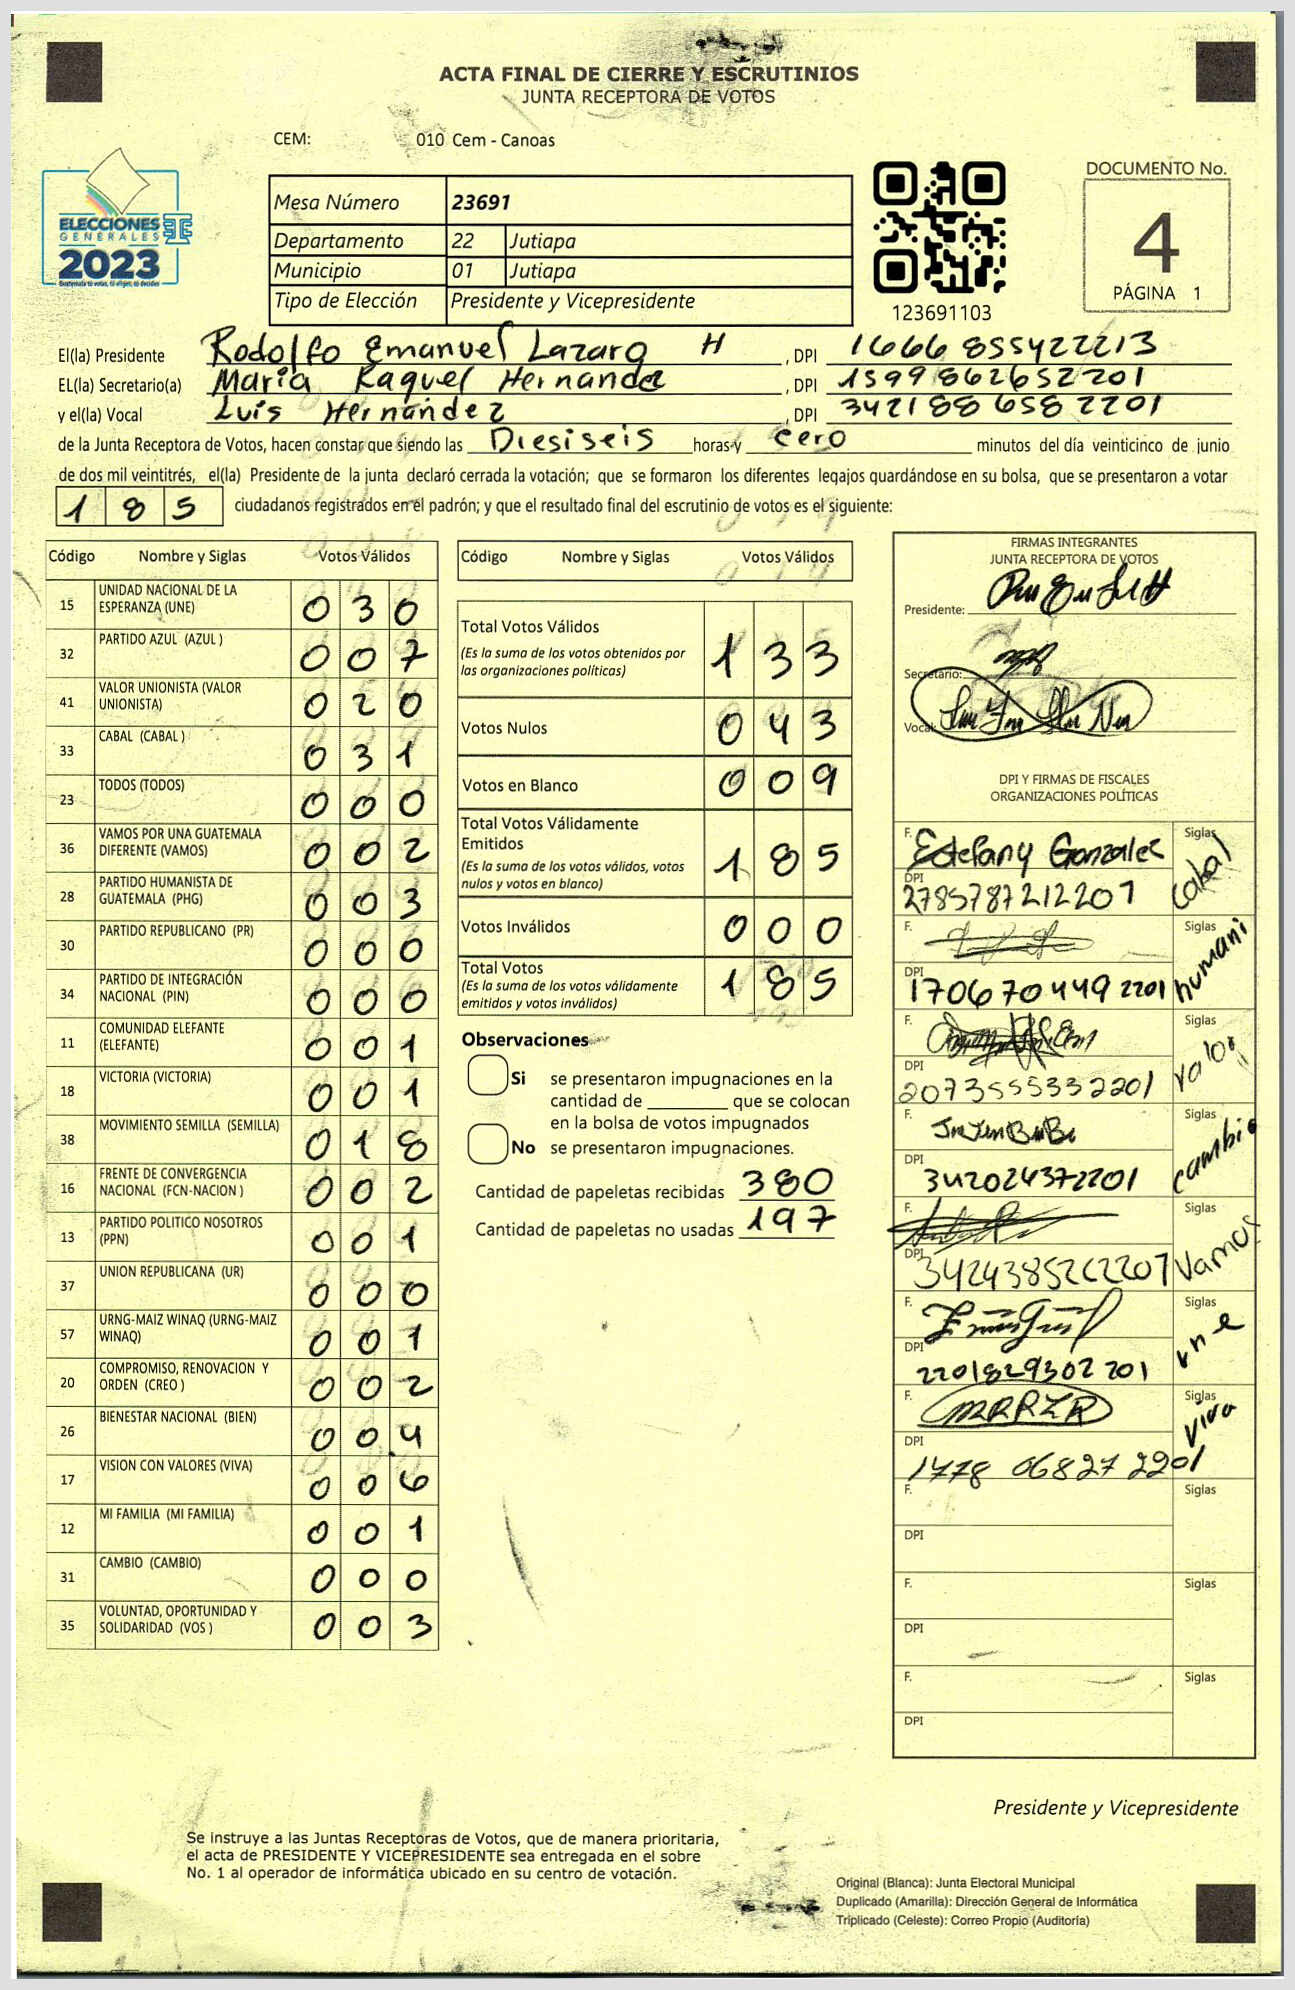 ACTA FINAL DE CIERRE Y ESCRUTINIOS
JUNTA RECEPTORA DE VOTOS
CEM: 010 Cem - Canoas
ELECCIONES
GENERALES
2023
Mesa Número 23691
Departamento 22 Jutiapa
Municipio 01 Jutiapa
Tipo de Elección Presidente y Vicepresidente
123691103
DOCUMENTO No.
4
PÁGINA 1
El(la) Presidente Rodolfo Emanuel Lazaro H , DPI 1666 855422213
EL(la) Secretario(a) Maria Raquel Hernandez , DPI 1599862652201
y el(la) Vocal Luis Hernández , DPI 3421886582201
de la Junta Receptora de Votos, hacen constar que siendo las Diesiseis horas y cero minutos del día veinticinco de junio
de dos mil veintitrés, el(la) Presidente de la junta declaró cerrada la votación; que se formaron los diferentes legajos guardándose en su bolsa, que se presentaron a votar
185 ciudadanos registrados en el padrón; y que el resultado final del escrutinio de votos es el siguiente:
Código Nombre y Siglas Votos Válidos
15 UNIDAD NACIONAL DE LA ESPERANZA (UNE) 030
32 PARTIDO AZUL (AZUL ) 007
41 VALOR UNIONISTA (VALOR UNIONISTA) 020
33 CABAL (CABAL ) 031
23 TODOS (TODOS) 000
36 VAMOS POR UNA GUATEMALA DIFERENTE (VAMOS) 002
28 PARTIDO HUMANISTA DE GUATEMALA (PHG) 003
30 PARTIDO REPUBLICANO (PR) 000
34 PARTIDO DE INTEGRACIÓN NACIONAL (PIN) 000
11 COMUNIDAD ELEFANTE (ELEFANTE) 001
18 VICTORIA (VICTORIA) 001
38 MOVIMIENTO SEMILLA (SEMILLA) 018
16 FRENTE DE CONVERGENCIA NACIONAL (FCN-NACION ) 002
13 PARTIDO POLITICO NOSOTROS (PPN) 001
37 UNION REPUBLICANA (UR) 000
57 URNG-MAIZ WINAQ (URNG-MAIZ WINAQ) 001
20 COMPROMISO, RENOVACION Y ORDEN (CREO ) 002
26 BIENESTAR NACIONAL (BIEN) 004
17 VISION CON VALORES (VIVA) 006
12 MI FAMILIA (MI FAMILIA) 001
31 CAMBIO (CAMBIO) 000
35 VOLUNTAD, OPORTUNIDAD Y SOLIDARIDAD (VOS ) 003
Código Nombre y Siglas Votos Válidos
Total Votos Válidos 133
(Es la suma de los votos obtenidos por
las organizaciones políticas)
Votos Nulos 043
Votos en Blanco 009
Total Votos Válidamente
Emitidos 185
(Es la suma de los votos válidos, votos
nulos y votos en blanco)
Votos Inválidos 000
Total Votos 185
(Es la suma de los votos válidamente
emitidos y votos inválidos)
Observaciones
Si se presentaron impugnaciones en la
cantidad de ________ que se colocan
en la bolsa de votos impugnados
No se presentaron impugnaciones.
Cantidad de papeletas recibidas 380
Cantidad de papeletas no usadas 197
FIRMAS INTEGRANTES
JUNTA RECEPTORA DE VOTOS
Presidente:
Secretario:
Vocal:
DPI Y FIRMAS DE FISCALES
ORGANIZACIONES POLÍTICAS
F. Estefany Gonzalez Siglas cabal
DPI 2785787212207
F. Siglas humani
DPI 1706704492201
F. Siglas valor
DPI 2073555332201
F. Siglas cambio
DPI 342024372201
F. Siglas Vamos
DPI
F. Siglas une
DPI 2201829302201
F. Siglas viva
DPI 1778 06827 2201
F. Siglas
DPI
F. Siglas
DPI
F. Siglas
DPI
Presidente y Vicepresidente
Se instruye a las Juntas Receptoras de Votos, que de manera prioritaria,
el acta de PRESIDENTE Y VICEPRESIDENTE sea entregada en el sobre
No. 1 al operador de informática ubicado en su centro de votación.
Original (Blanca): Junta Electoral Municipal
Duplicado (Amarilla): Dirección General de Informática
Triplicado (Celeste): Correo Propio (Auditoría)